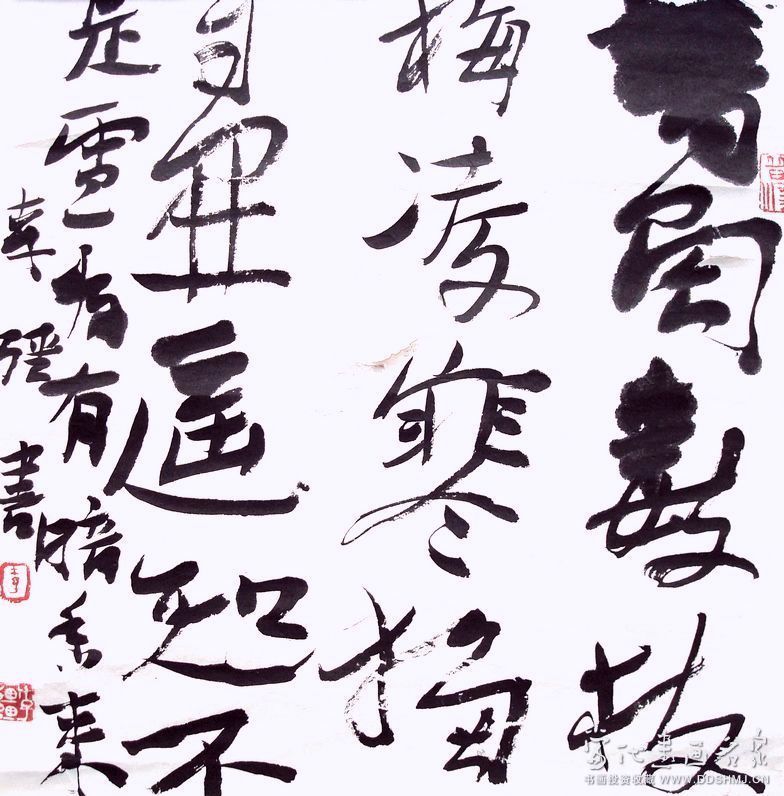 墙角數枝
梅凌寒独
自開遥知不
是雪為有暗香来
幸疆書
当代書画名家
书画投资收藏 WWW.DDSHMJ.CN